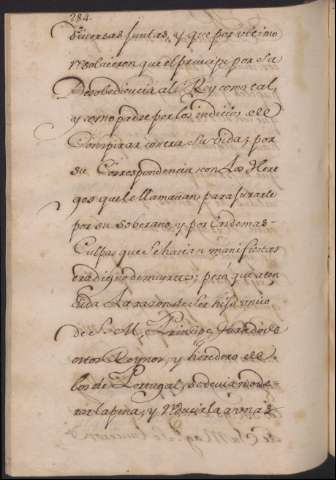 284.
diversas Juntas, y que por ultimo
resolvieron que el principe por su
Desobediencia al Rey como tal,
y como padre por los indicios de
Conspirar contra su vida; por
su Correspondencia con Los Here
ges que le llamavan, para jurarle
por su soberano, y por las demas
Culpas que se hacian manifiestas
era digno de muerte; pero que aten
dida La razon de ser hijo unico
de S. M., Principe Jurado de
estos Reynos, y heredero de
los de Portugal, se devia mode
rar la pena, y reducirla a una